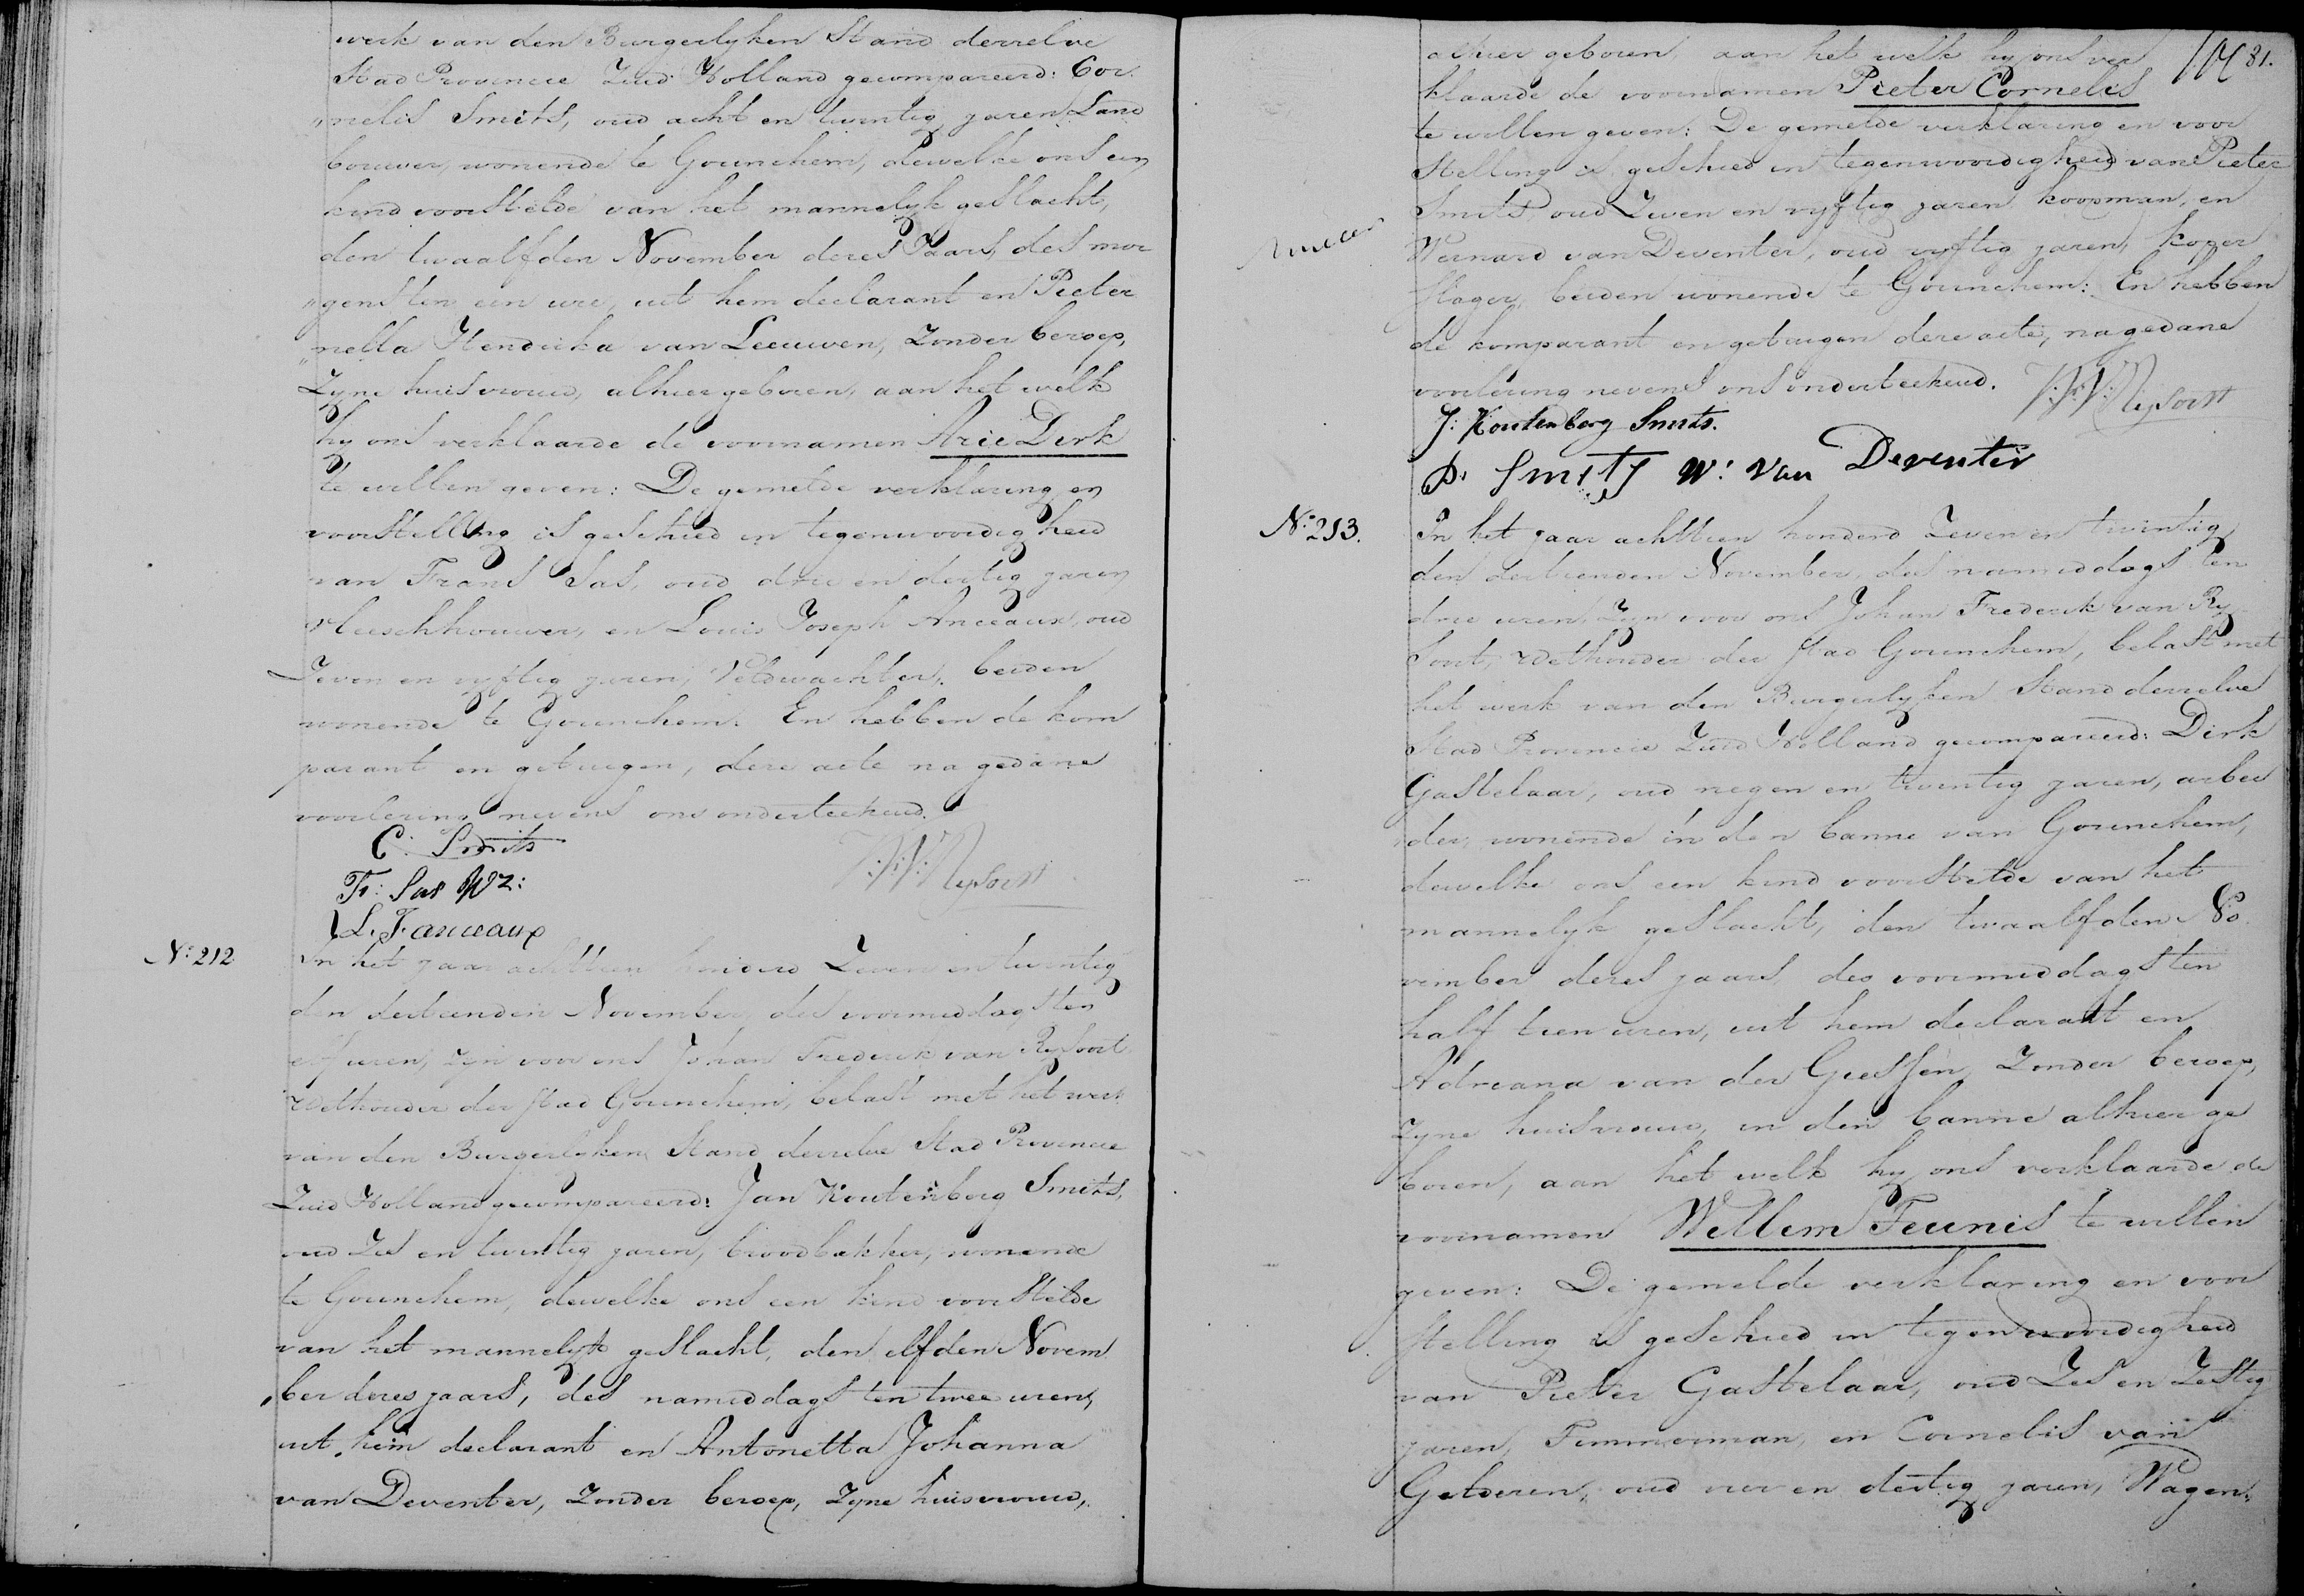 werk van den Burgerlyken Stand derzelve
Stad Provincie Zuid Holland gecompareerd: Cor„
„nelis Smits, oud acht en twintig jaren Land
bouwer, wonende te Gorinchem, dewelke ons een
kind voorstelde van het mannelyk geslacht,
den twaalfden November dezes Jaars, des mor
„gens ten een ure, uit hem declarant en Pieter
„nella Hendrika van Leeuwen, Zonder beroep,
Zyne huisvrouw, alhier geboren, aan het welk
hy ons verklaarde de voornamen Arie Dirk
te willen geven: De gemelde verklaring en
voorstelling is geschied in tegenwoordigheid
van Frans Sas, oud drie en dertig jaren
vleeschhouwer, en Louis Joseph Anceaux, oud
Zeven en vyftig jaren, Veldwachter, beiden
wonende te Gorinchem: En hebben de kom
parant en getuigen, deze acte na gedane
voorlezing nevens ons onderteekend.
C. Smits
Fr: Sas Wz:
L. J. anceaux
N:o 212
In het jaar achttien honderd Zeven en twintig
den dertienden November, des voormiddags ten
elf uren, zyn voor ons Johan Frederik van Rysoort
Wethouder der Stad Gorinchem, belast met het werk
van den Burgerlyken Stand derzelve Stad Provincie
Zuid Holland gecompareerd: Jan Houtenborg Smits,
oud Zes en twintig jaren, broodbakker, wonende
te Gorinchem, dewelke ons een kind voorstelde
van het mannelyk geslacht, den elfden Novem
„ber dezes jaars, des namiddags ten twee uren,
uit hem declarant en Antonetta Johanna
van Deventer, Zonder beroep, Zyne huisvrouw,
81.
alhier geboren, aan het welk hy ons ver
klaarde de voornamen Pieter Cornelis
te willen geven: De gemelde verklaring en voor
Stelling is geschied in tegenwoordigheid van Pieter
Smits oud Zeven en vyftig jaren koopman, en
Wernard van Deventer, oud vyftig jaren, koper
slager, beiden wonende te Gorinchem: En hebben
de komparant en getuigen deze acte, na gedane
voorlezing nevens ons onderteekend.
J: Houtenborg Smits.
P. Smits W: van Deventer
N:o 213.
In het jaar achttien honderd Zeven en twintig
den dertienden November, des namiddags ten
drie uren, Zyn voor ons Johan Frederik van Ry
soort, Wethouder der Stad Gorinchem, belast met
het werk van den Burgerlyken Stand derzelve
Stad Provincie Zuid Holland gecompareerd: Dirk
Gastelaar, oud negen en twintig jaren, arbei
der, wonende in den banne van Gorinchem,
dewelke ons een kind voorstelde van het
mannelyk geslacht, den twaalfden No
vember dezes jaars, des voormiddags ten
half tien uren, uit hem declarant en
Adreana van der Giessen, Zonder beroep,
Zyne huisvrouw, in den banne alhier ge
boren, aan het welk hy ons verklaarde de
voornamen Willem Teunis te willen
geven: De gemelde verklaring en voor
Stelling is geschied in tegenwoordigheid
van Pieter Gastelaar, oud Zes en Zestig
jaren, Timmerman, en Cornelis van
Gelderen, oud vier en dertig jaren, Wagen„